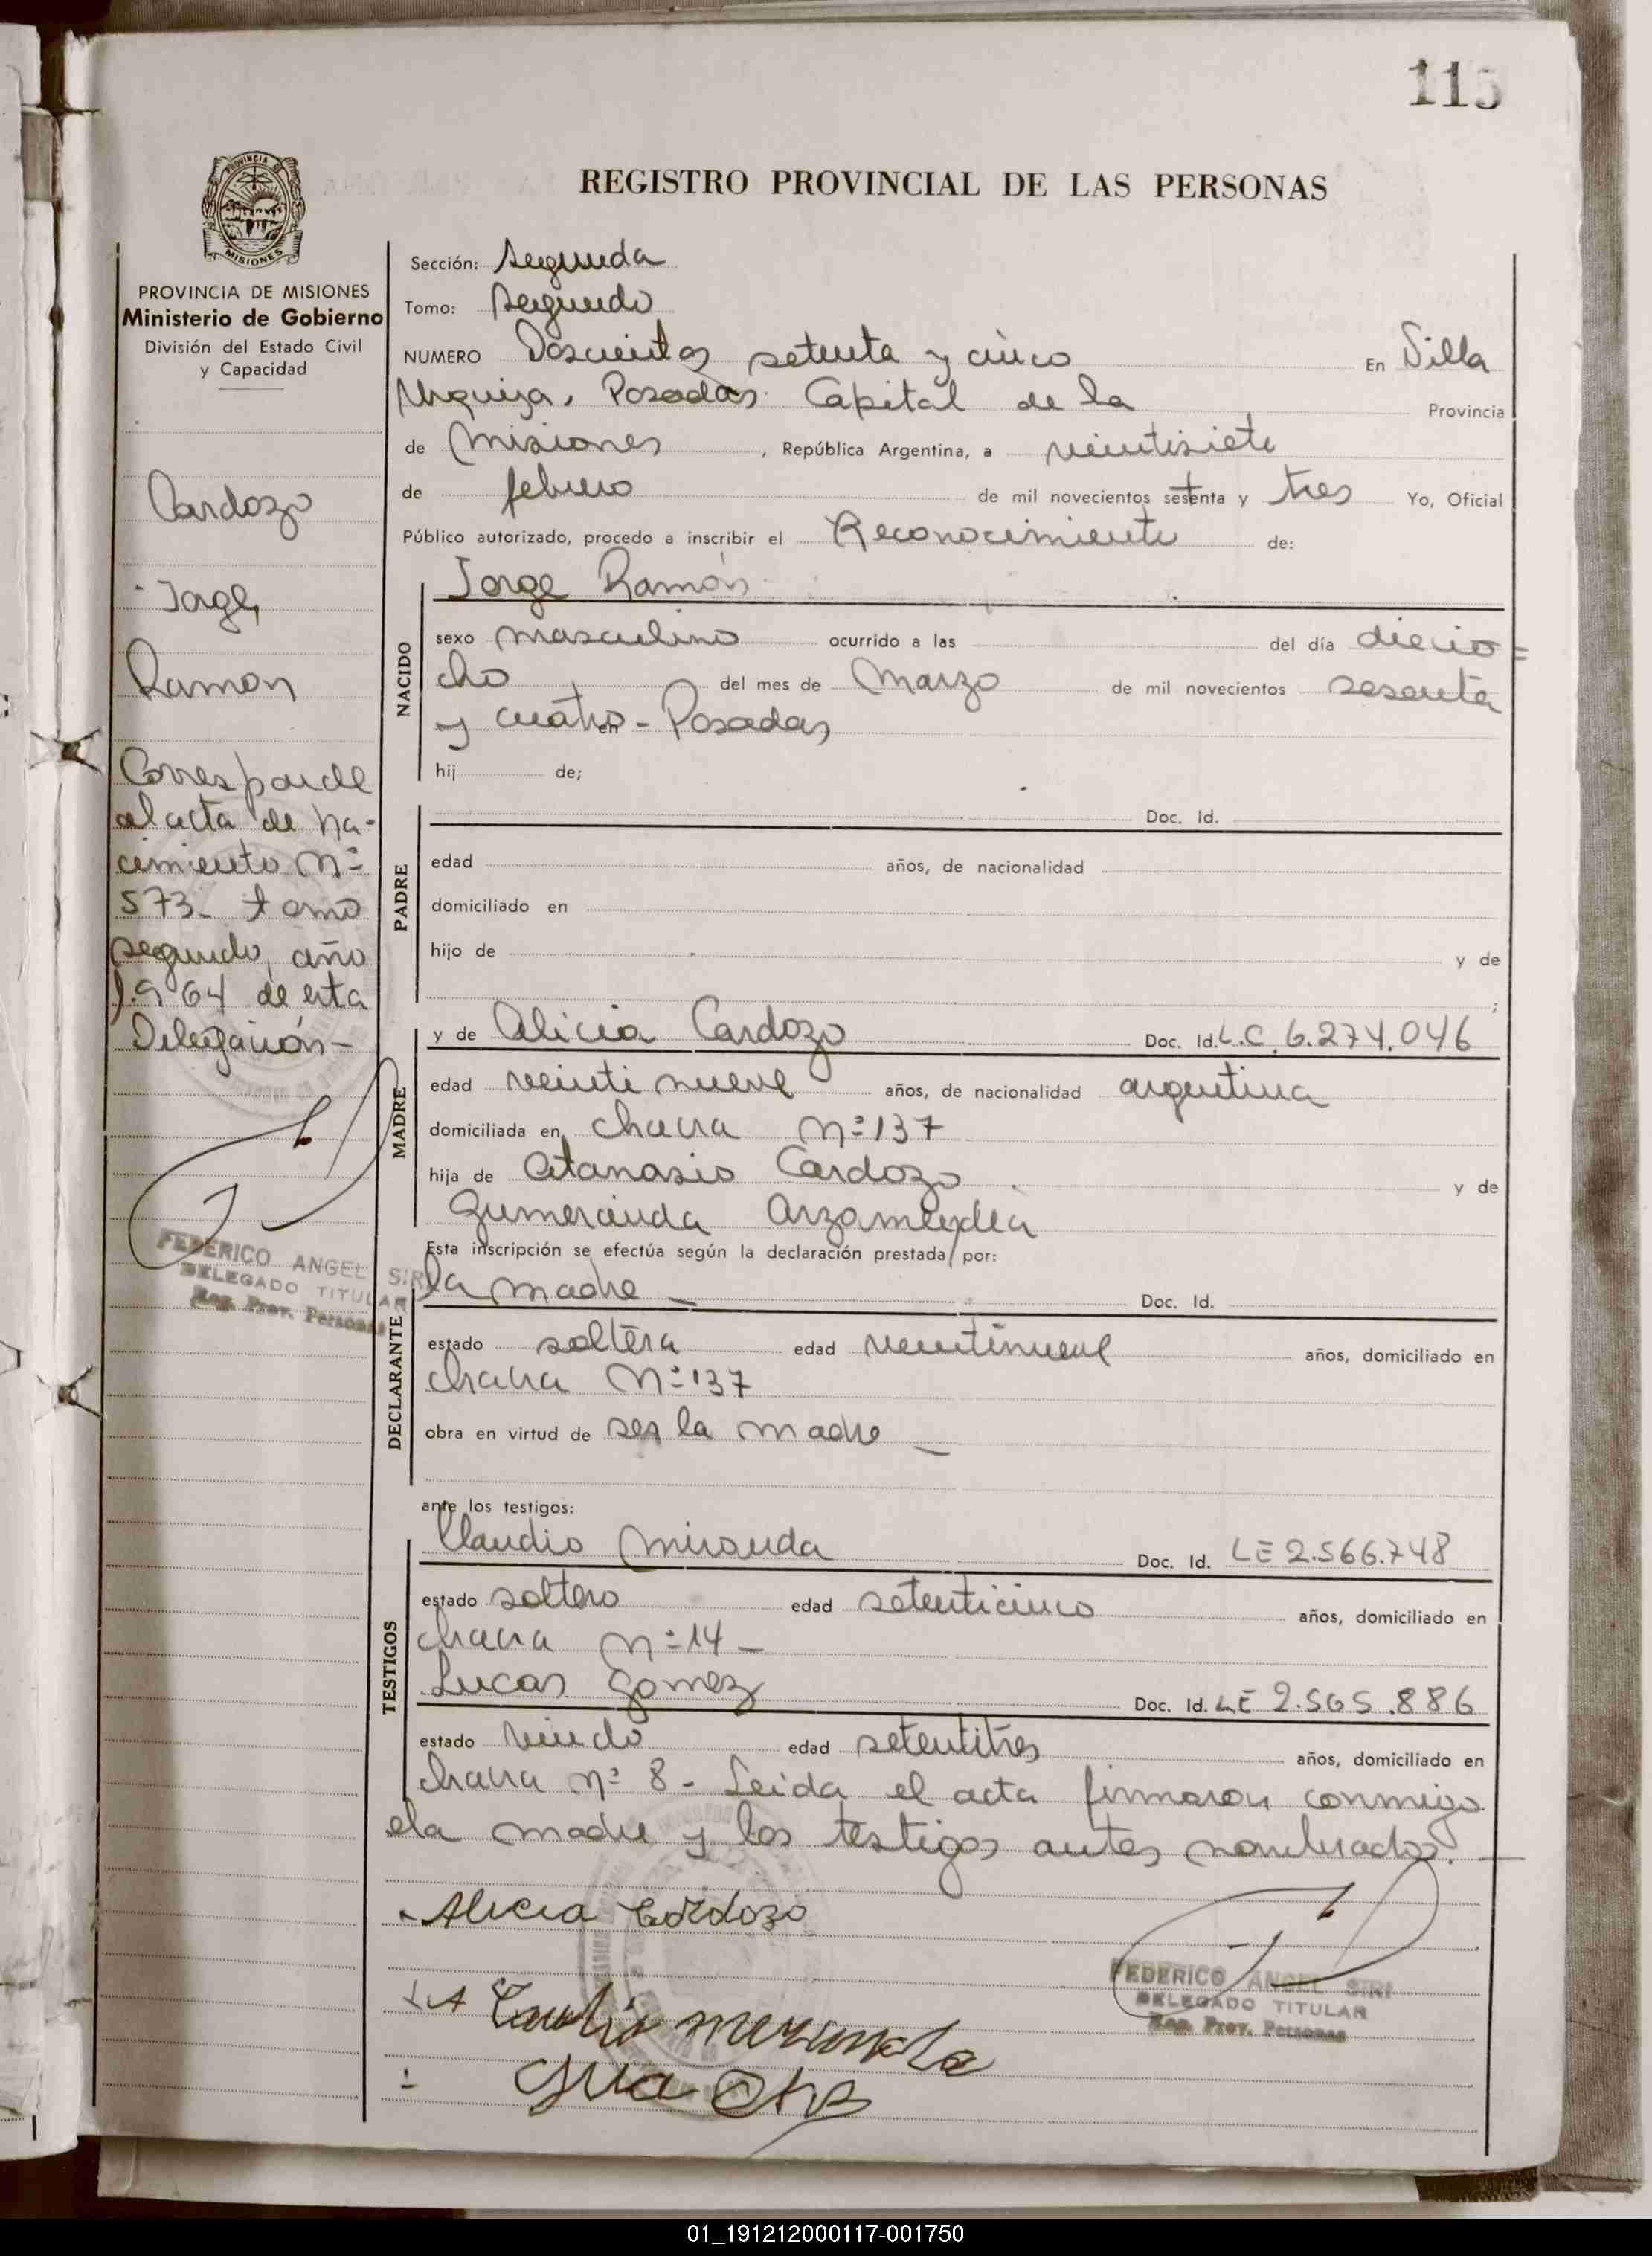 115
REGISTRO PROVINCIAL DE LAS PERSONAS
PROVINCIA DE
MISIONES
PROVINCIA DE MISIONES
Ministerio de Gobierno
División del Estado Civil
y Capacidad
Cardozo
Jorge
Ramon
Corresponde
al acta de na-
cimiento Nº
573- tomo
segundo, año
1.964 de esta
Delegación-
FEDERICO ANGEL SIRI
DELEGADO TITULAR
Reg. Prov. Personas
Sección: Segunda
Tomo: Segundo
NUMERO Doscientos setenta y cinco En Villa
Urquiza, Posadas Capital de la Provincia
de Misiones, República Argentina, a veintisiete
de febrero de mil novecientos setenta y tres Yo, Oficial
Público autorizado, procedo a inscribir el Reconocimiento de:
NACIDO
Jorge Ramón
sexo masculino ocurrido a las del día diecio=
cho del mes de Marzo de mil novecientos sesenta
y cuatro en - Posadas
hij de;
PADRE
Doc. Id.
edad años, de nacionalidad
domiciliado en
hijo de y de
;
MADRE
y de Alicia Cardozo Doc. Id. L.C. 6.274.046
edad veintinueve años, de nacionalidad argentina
domiciliada en chacra Nº 137
hija de Atanasio Cardozo y de
Gumercinda Arzamendia
Esta inscripción se efectúa según la declaración prestada por:
DECLARANTE
la madre - Doc. Id.
estado soltera edad veintinueve años, domiciliado en
chacra Nº 137
obra en virtud de ser la madre -
ante los testigos:
TESTIGOS
Claudio Miranda Doc. Id. LE 2.566.748
estado soltero edad setenticinco años, domiciliado en
chacra Nº 14 -
Lucas Gomez Doc. Id. LE 2.565.886
estado viudo edad setentitres años, domiciliado en
chacra Nº 8 - Leida el acta firmaron conmigo
la madre y los testigos antes nombrados.
Alicia Cardozo
FEDERICO ANGEL SIRI
DELEGADO TITULAR
Reg. Prov. Personas
01_191212000117-001750